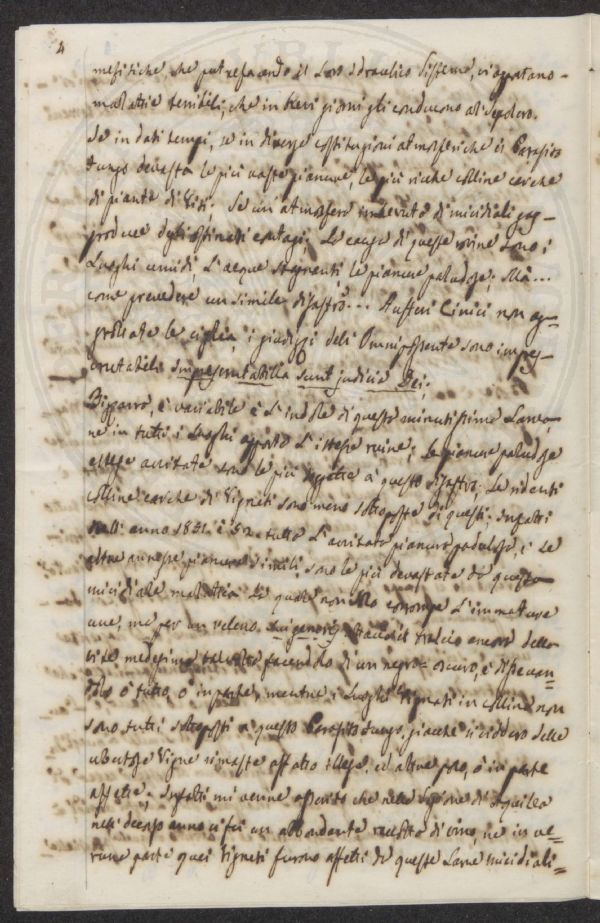 4
mefitiche, che putrefacendo il loro Idraulico Sistema, vi apportano
malattie terribili, che in brevi giorni gli conducono al Sepolcro.
Se in dati tempi, se in diverse costituzioni atmosferiche il Parasito
fungo devasta le più vaste pianure, le più ricche colline carche
di piante di Viti; Se un' atmosfera imbevuta di micidiali gas
produce degli ostinati contagi; Le cause di queste rovine sono i
Luoghi umidi, L'acque stagnenti le pianure paludose; Ma...
come prevedere un simile disastro... Austeri Cinici non ag=
grottate le ciglia, i giudizzi deli Omnipossente sono impes=
crutabili Imperscrutabilia sunt judicia Dei.
Bizzarro, e variabile è L'indole di questo minutissimo
in tutti i Luoghi apporta L'istesse ruine; Le pianure paludose
sono le più soggette a questo disastro; Le ridenti
colline carche di Vigneti sono meno sottoposte di questi; Infatti
nell' anno 1851. e 52. tutto L' pianure paduloso, e le
altre annesse pianure simili sono le più devastate da questa
micidiale malattia La quale non solo corrompe L'immature
uve, ma per un veleno il tralcio ancora della
vite medesima talvolta facendolo di un negro-oscuro, e dissecan=
dolo o tutto, o in parte, mentre i Luoghi Vignati in collina non
sono tutti sottoposti a questo Parasito fungo, giacchè si viddero delle
ubertose Vigne rimaste affatto illese, ed altre poco, o in parte
affette; Infatti mi venne asserito che nella di Aquilea
nell decorso anno vi fù un abbondante raccolto di vino, ne in ve=
runa parte quei Vigneti furono affetti da queste Larve micidiali=